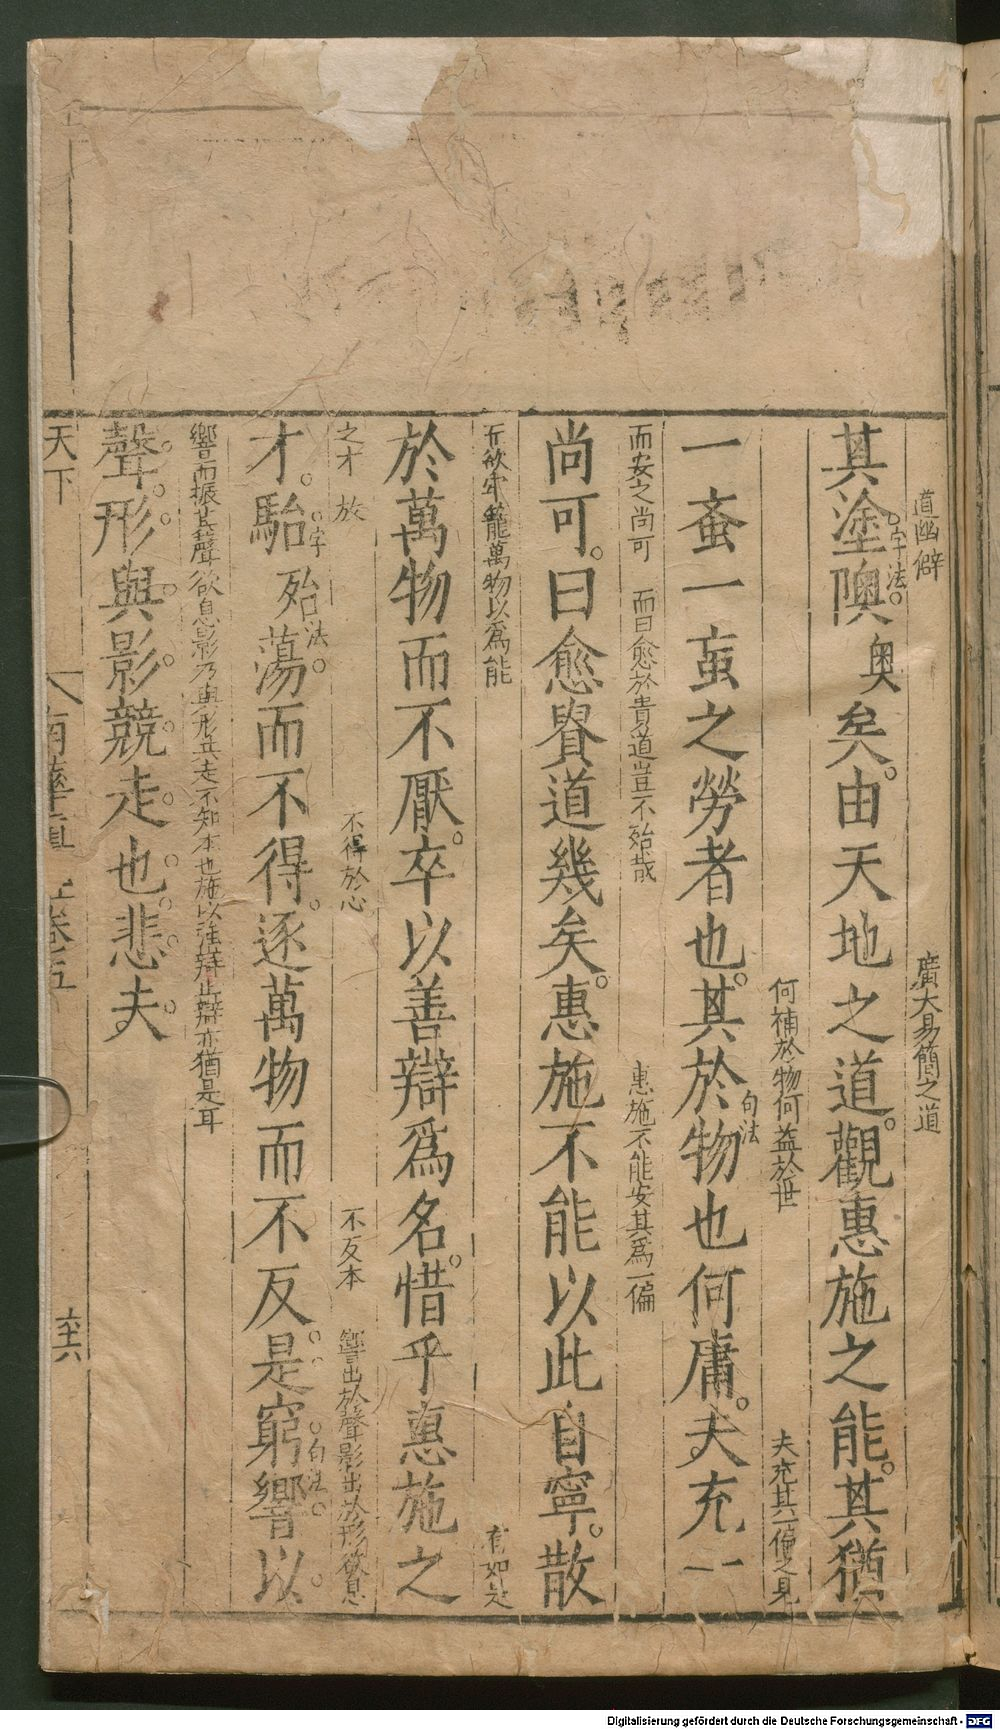 道幽僻　廣大易簡之道
其塗隩奧矣由天地之道觀惠施之能其猶
字法
何補於物何益於世　夫充其一偏之見
一蚉一䖟之勞者也其於物也何庸夫充一
句法
而安之尚可　而曰愈於貴道豈不殆哉　惠施不能安其爲一偏
尚可曰愈貴道幾矣惠施不能以此自寧散
方欲牢籠萬物以爲能　有如是
於萬物而不厭卒以善辯爲名惜乎惠施之
之才　放　不得於心　不反本　響出於聲影出於形欲息
才駘殆蕩而不得逐萬物而不反是窮響以
字法　句法
響而振其聲欲息影乃與形共走不知本也施以注辯止辯亦猶是耳
聲形與影競走也悲夫
天下　南華真經卷五　六
Digitalisierung gefördert durch die Deutsche Forschungsgemeinschaft - DFG